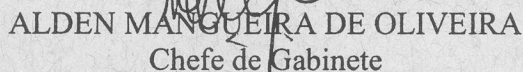 ALDEN MANGUEIRA DE OLIVEIRA
Chefe de Gabinete